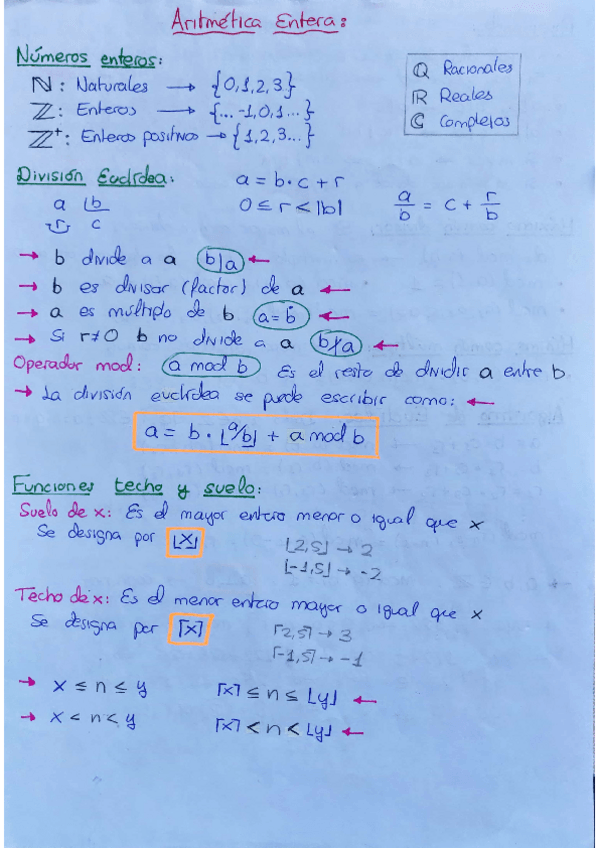 Aritmética Entera:
Números enteros:
ℕ: Naturales → {0,1,2,3}
ℤ: Enteros → {...-1,0,1...}
ℤ⁺: Enteros positivos → {1,2,3...}
ℚ Racionales
ℝ Reales
ℂ Complejos
División Euclídea: a = b·c + r
a |b 0 ≤ r < |b| a/b = c + r/b
r c
→ b divide a a b|a ←
→ b es divisor (factor) de a ←
→ a es múltiplo de b a = ḃ ←
→ Si r≠0 b no divide a a b∤a ←
Operador mod: a mod b Es el resto de dividir a entre b
→ La división euclídea se puede escribir como: ←
a = b · ⌊a/b⌋ + a mod b
Funciones techo y suelo:
Suelo de x: Es el mayor entero menor o igual que x
Se designa por ⌊x⌋ ⌊2,5⌋ → 2
⌊-1,5⌋ → -2
Techo de x: Es el menor entero mayor o igual que x
Se designa por ⌈x⌉ ⌈2,5⌉ → 3
⌈-1,5⌉ → -1
→ x ≤ n ≤ y ⌈x⌉ ≤ n ≤ ⌊y⌋ ←
→ x < n < y ⌈x⌉ < n < ⌊y⌋ ←